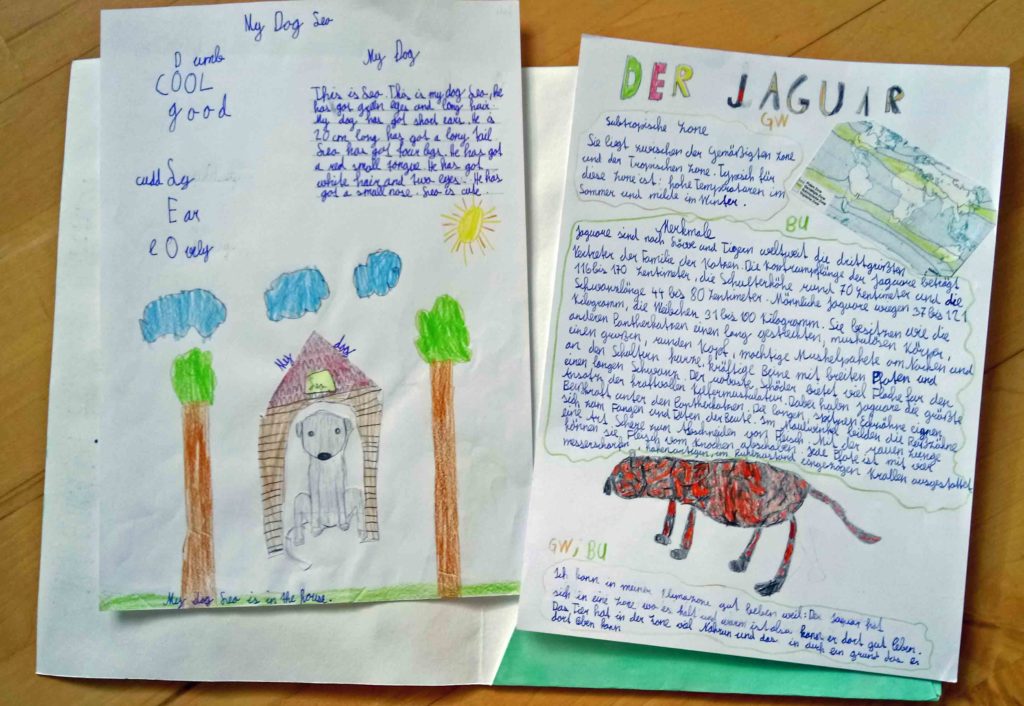 My Dog Leo
Dumb
COOL
good
cuddLy
Ear
lOvely
My Dog
This is Leo. This is my dog Leo. He
has got green eyes and long hair.
My dog has got short ears. He is
20 cm long has got a long tail.
Leo has got four legs. He has got
a red small tongue. He has got
white hair and two eyes. He has
got a small nose. Leo is cute.
My dog
Leo
My Dog Leo is in the house.
DER JAGUAR
GW
Subtropische Zone
Sie liegt zwischen der Gemäßigten Zone
und der Tropischen Zone. Typisch für
diese Zone ist: hohe Temperaturen im
Sommer und milde im Winter.
BU
Merkmale
Jaguare sind nach Löwe und Tigern weltweit die drittgrößten
Vertreter der Familie der Katzen. Die Kopfrumpflänge der Jaguare beträgt
116 bis 170 Zentimeter, die Schulterhöhe rund 70 Zentimeter und die
Schwanzlänge 44 bis 80 Zentimeter. Männliche Jaguare wiegen 37 bis 121
Kilogramm, die Weibchen 31 bis 100 Kilogramm. Sie besitzen wie die
anderen Pantherkatzen einen lang gestreckten, muskulösen Körper,
einen großen, runden Kopf, mächtige Muskelpakete am Nacken und
an den Schultern kurze, kräftige Beine mit breiten Pfoten und
einen langen Schwanz. Der robuste Schädel bietet viel Fläche für den
Ansatz der kraftvollen Kiefermuskulatur. Dabei haben Jaguare die größte
Beißkraft unter den Pantherkatzen. Die langen, spitzen Eckzähne eignen
sich zum Fangen und Töten der Beute. Im Maulwinkel bilden die Reißzähne
eine Art Schere zum Abschneiden von Fleisch. Mit der rauen Zunge
können sie Fleisch vom Knochen abschaben. Jede Pfote ist mit vier
messerscharfen, hakenartigen, im Ruhezustand eingezogen Krallen ausgestattet
GW, BU
Ich kann in meiner Klimazone gut leben weil: Der Jaguar lebt
sich in eine Zone wo es kalt und warm ist also kann er dort gut leben.
Das Tier hat in der Zone viel Nahrun und das in auch ein grund das er
dort leben kann